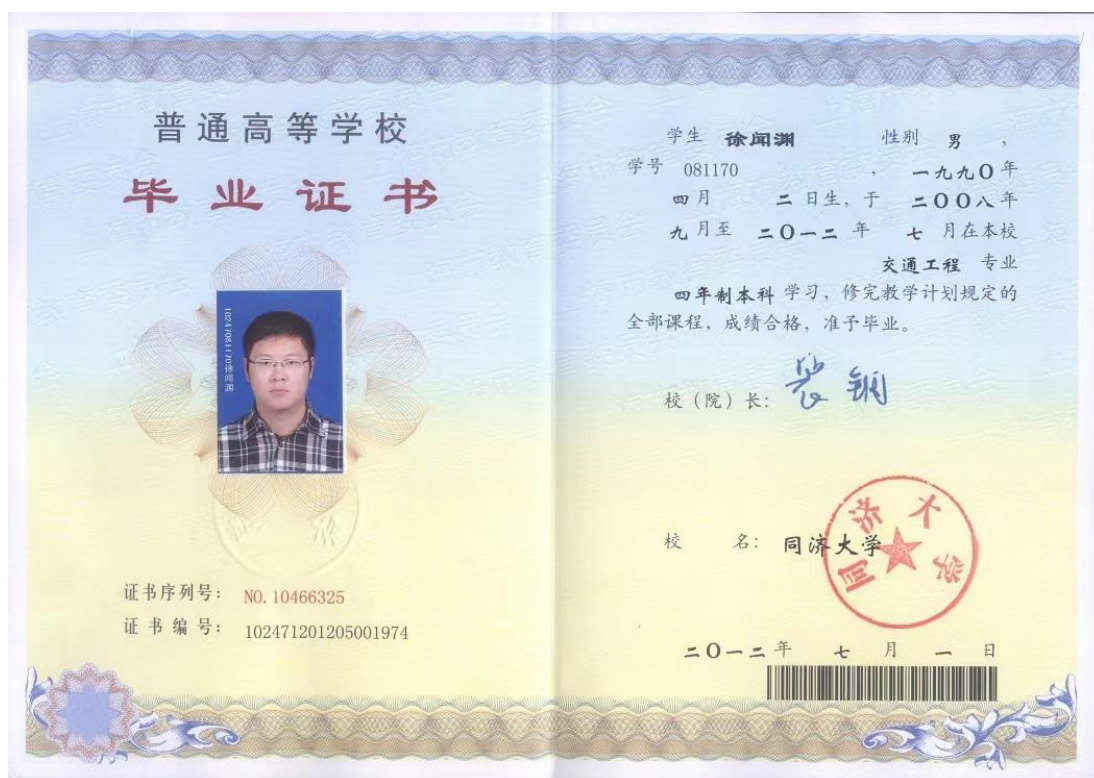 普通高等学校
毕业证书
10247081170徐闻渊
证书序列号: NO. 10466325
证书编号: 102471201205001974
学生 徐闻渊 性别 男,
学号 081170 , 一九九〇年
四月 二日生, 于 二〇〇八年
九月至 二〇一二 年 七 月在本校
交通工程 专业
四年制本科 学习, 修完教学计划规定的
全部课程, 成绩合格, 准予毕业。
校(院)长: 裴钢
校 名: 同济大学
同济大学
二〇一二年 七 月 一 日